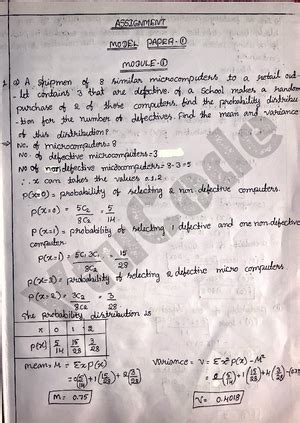 ASSIGNMENT
MODEL PAPER-①
MODULE-①
a) A shipmen of 8 similar microcomputers to a retail out-
let contains 3 that are defective. If a School makes a random
purchase of 2 of these computers, find the probability distribu
-tion for the number of defectives. Find the mean and variance
of this distribution?
No. of microcomputers=8
No. of defective microcomputers=3
No of non defective microcomputers=8-3=5
∴ x can takes the values 0,1,2.
P(x=0) = probability of selecting 2 non defective computers.
P(x=0) = 5C₂/8C₂ = 5/14
P(x=1) = probability of selecting 1 defective and one non-defective
computer.
P(x=1) = 5C₁.3C₁/8C₂ = 15/28
P(x=2) = probability of selecting 2 defective micro computers
P(x=2) = 3C₂/8C₂ = 3/28
The probability distribution is
x 0 1 2
P(x) 5/14 15/28 3/28
mean = M = Σx p(x)
= 0(5/14)+1(15/28)+2(3/28)
M = 0.75
variance = V = Σx²p(x) - M²
V = 0.4018
YouCode